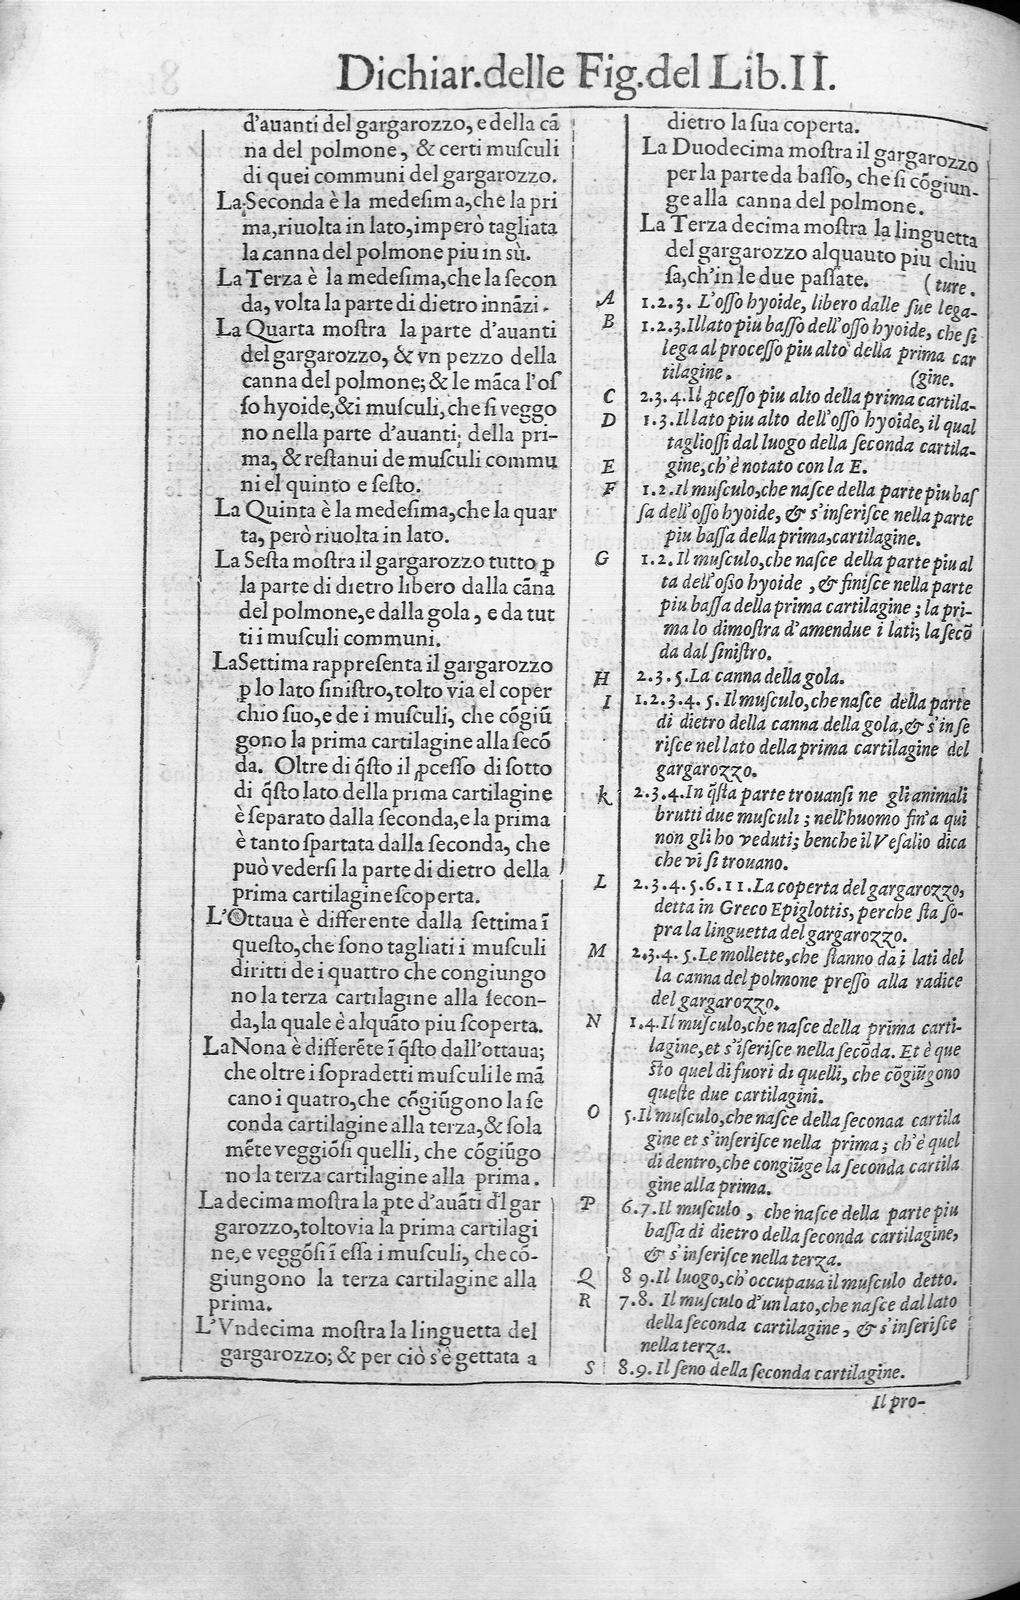 Dichiar.delle Fig.del Lib.II.
d'auanti del gargarozzo, e della cã
na del polmone, & certi muſculi
di quei communi del gargarozzo.
La Seconda è la medeſima, che la pri
ma, riuolta in lato, imperò tagliata
la canna del polmone piu in sù.
La Terza è la medeſima, che la ſecon
da, volta la parte di dietro innãzi.
La Quarta moſtra la parte d'auanti
del gargarozzo, & vn pezzo della
canna del polmone; & le mãca l'oſ
ſo hyoide, & i muſculi, che ſi veggo
no nella parte d'auanti; della pri-
ma, & reſtanui de muſculi commu
ni el quinto e ſeſto.
La Quinta è la medeſima, che la quar
ta, però riuolta in lato.
La Seſta moſtra il gargarozzo tutto ꝑ
la parte di dietro libero dalla cãna
del polmone, e dalla gola, e da tut
ti i muſculi communi.
La Settima rappreſenta il gargarozzo
ꝑ lo lato ſiniſtro, tolto via el coper
chio ſuo, e de i muſculi, che cõgiũ
gono la prima cartilagine alla ſecõ
da. Oltre di q̃ſto il ꝓceſſo di ſotto
di q̃ſto lato della prima cartilagine
è ſeparato dalla ſeconda, e la prima
è tanto ſpartata dalla ſeconda, che
può vederſi la parte di dietro della
prima cartilagine ſcoperta.
L'Ottaua è differente dalla ſettima ĩ
queſto, che ſono tagliati i muſculi
diritti de i quattro che congiungo
no la terza cartilagine alla ſecon-
da, la quale è alquãto piu ſcoperta.
La Nona è differẽte ĩ q̃ſto dall'ottaua;
che oltre i ſopradetti muſculi le mã
cano i quatro, che cõgiũgono la ſe
conda cartilagine alla terza, & ſola
mẽte veggiõſi quelli, che cõgiũgo
no la terza cartilagine alla prima.
La decima moſtra la ꝑte d'auãti d̃l gar
garozzo, tolto via la prima cartilagi
ne, e veggõſi ĩ eſſa i muſculi, che cõ-
giungono la terza cartilagine alla
prima.
L'Vndecima moſtra la linguetta del
gargarozzo; & per ciò s'è gettata a
dietro la ſua coperta.
La Duodecima moſtra il gargarozzo
per la parte da baſſo, che ſi cõgiun-
ge alla canna del polmone.
La Terza decima moſtra la linguetta
del gargarozzo alquauto piu chiu
ſa, ch'in le due paſſate. (ture.
A 1.2.3. L'oſſo hyoide, libero dalle ſue lega-
B 1.2.3. Il lato piu baſſo dell'oſſo hyoide, che ſi
lega al proceſſo piu alto della prima car
tilagine. (gine.
C 2.3.4. Il ꝓceſſo piu alto della prima cartila-
D 1.3. Il lato piu alto dell'oſſo hyoide, il qual
taglioſſi dal luogo della ſeconda cartila-
E gine, ch'è notato con la E.
F 1.2. Il muſculo, che naſce della parte piu baſ
ſa dell'oſſo hyoide, & s'inſeriſce nella parte
piu baſſa della prima, cartilagine.
G 1.2. Il muſculo, che naſce della parte piu al
ta dell'oſſo hyoide, & finiſce nella parte
piu baſſa della prima cartilagine; la pri-
ma lo dimoſtra d'amendue i lati; la ſecõ
da dal ſiniſtro.
H 2.3.5. La canna della gola.
I 1.2.3.4.5. Il muſculo, che naſce della parte
di dietro della canna della gola, & s'inſe
riſce nel lato della prima cartilagine del
gargarozzo.
k 2.3.4. In q̃ſta parte trouanſi ne gli animali
brutti due muſculi; nell'huomo fin'a qui
non gli ho veduti; benche il Veſalio dica
che vi ſi trouano.
L 2.3.4.5.6.11. La coperta del gargarozzo,
detta in Greco Epiglottis, perche ſta ſo-
pra la linguetta del gargarozzo.
M 2.3.4.5. Le mollette, che ſtanno da i lati del
la canna del polmone preſſo alla radice
del gargarozzo.
N 1.4. Il muſculo, che naſce della prima carti-
lagine, et s'ĩſeriſce nella ſecõda. Et è que
ſto quel di fuori di quelli, che cõgiũgono
queſte due cartilagini.
O 5. Il muſculo, che naſce della ſeconda cartila
gine et s'inſeriſce nella prima; ch'è quel
di dentro, che congiũge la ſeconda cartila
gine alla prima.
P 6.7. Il muſculo, che naſce della parte piu
baſſa di dietro della ſeconda cartilagine,
& s'inſeriſce nella terza.
Q 8 9. Il luogo, ch'occupaua il muſculo detto.
R 7.8. Il muſculo d'un lato, che naſce dal lato
della ſeconda cartilagine, & s'inſeriſce
nella terza.
S 8.9. Il ſeno della ſeconda cartilagine.
Il pro-